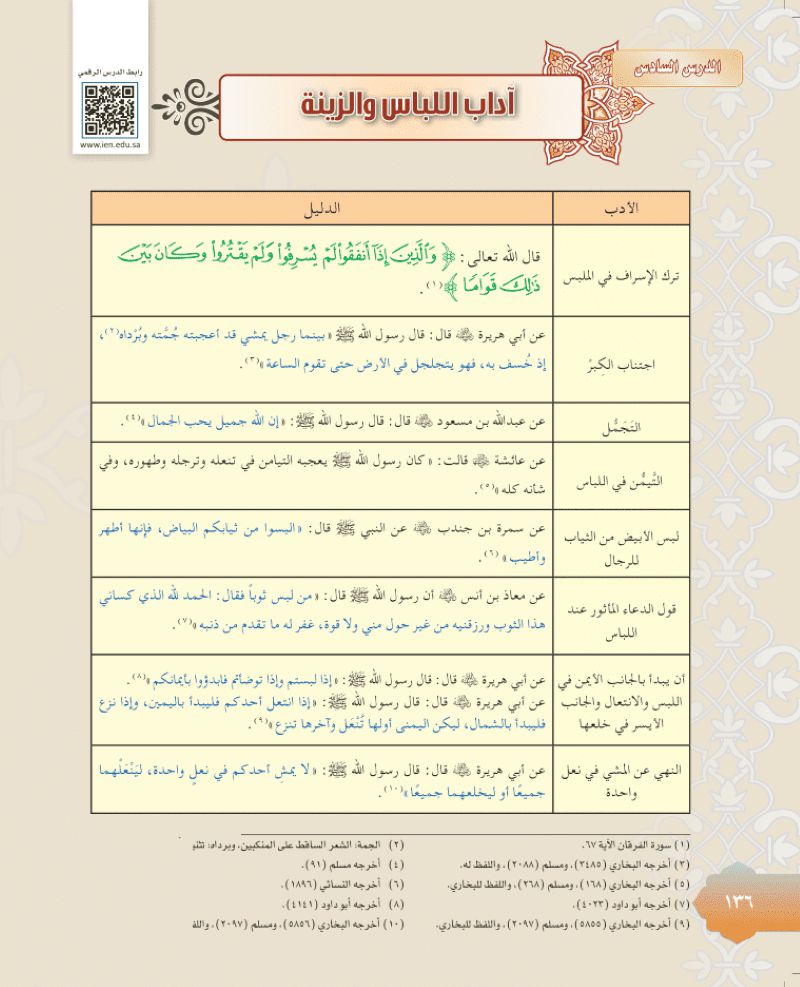 الدرس السادس
رابط الدرس الرقمي
www.ien.edu.sa
آداب اللباس والزينة
الأدب
الدليل
ترك الإسراف في الملبس
قال الله تعالى: ﴿ وَالَّذِينَ إِذَا أَنفَقُوا لَمْ يُسْرِفُوا وَلَمْ يَقْتُرُوا وَكَانَ بَيْنَ
ذَٰلِكَ قَوَامًا ﴾(١).
اجتناب الكِبرْ
عن أبي هريرة ﵁ قال: قال رسول الله ﷺ «بينما رجل يمشي قد أعجبته جُمَّته وبُرْداه(٢)،
إذ خُسف به، فهو يتجلجل في الأرض حتى تقوم الساعة»(٣).
التَجَمُّل
عن عبدالله بن مسعود ﵁ قال: قال رسول الله ﷺ: «إن الله جميل يحب الجمال»(٤).
التَّيمُّن في اللباس
عن عائشة ﵂ قالت: «كان رسول الله ﷺ يعجبه التيامن في تنعله وترجله وطهوره، وفي
شأنه كله»(٥).
لبس الأبيض من الثياب
للرجال
عن سمرة بن جندب ﵁ عن النبي ﷺ قال: «البسوا من ثيابكم البياض، فإنها أطهر
وأطيب»(٦).
قول الدعاء المأثور عند
اللباس
عن معاذ بن أنس ﵁ أن رسول الله ﷺ قال: «من لبس ثوباً فقال: الحمد لله الذي كساني
هذا الثوب ورزقنيه من غير حول مني ولا قوة، غفر له ما تقدم من ذنبه»(٧).
أن يبدأ بالجانب الأيمن في
اللبس والانتعال والجانب
الأيسر في خلعها
عن أبي هريرة ﵁ قال: قال رسول الله ﷺ: «إذا لبستم وإذا توضأتم فابدؤوا بأيمانكم»(٨).
عن أبي هريرة ﵁ قال: قال رسول الله ﷺ: «إذا انتعل أحدكم فليبدأ باليمين، وإذا نزع
فليبدأ بالشمال، ليكن اليمنى أولها تُنْعَل وآخرها تنزع»(٩).
النهي عن المشي في نعل
واحدة
عن أبي هريرة ﵁ قال: قال رسول الله ﷺ: «لا يمشِ أحدكم في نعلٍ واحدة، ليَنْعَلْهما
جميعًا أو ليخلعهما جميعًا»(١٠).
(١) سورة الفرقان الآية ٦٧.
(٢) الجمة: الشعر الساقط على المنكبين، وبرداه:
(٣) أخرجه البخاري (٣٤٨٥)، ومسلم (٢٠٨٨)، واللفظ له.
(٤) أخرجه مسلم (٩١).
(٥) أخرجه البخاري (١٦٨)، ومسلم (٢٦٨)، واللفظ للبخاري.
(٦) أخرجه النسائي (١٨٩٦).
(٧) أخرجه أبو داود (٤٠٢٣).
(٨) أخرجه أبو داود (٤١٤١).
(٩) أخرجه البخاري (٥٨٥٥)، ومسلم (٢٠٩٧)، واللفظ للبخاري.
(١٠) أخرجه البخاري (٥٨٥٦)، ومسلم (٢٠٩٧)،
١٣٦